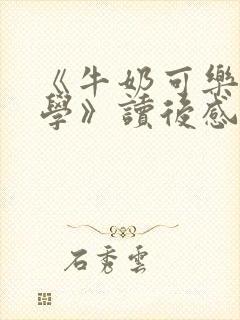 《牛奶可樂
學》讀後感
石秀雲